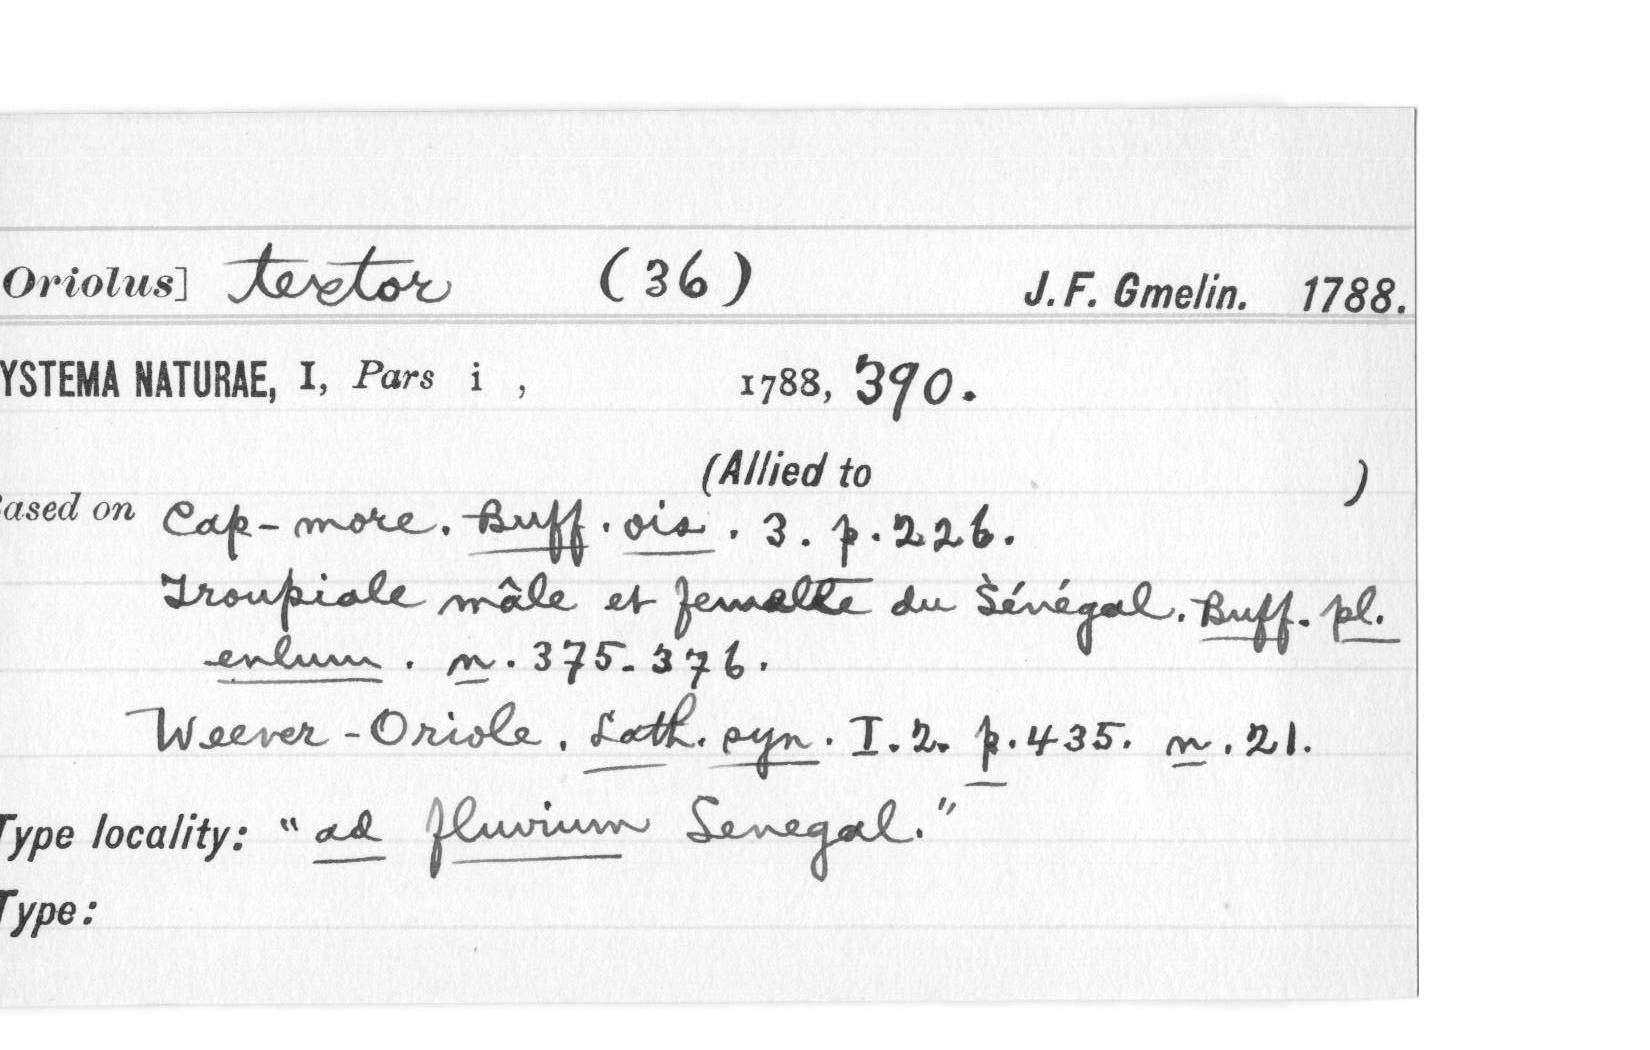 Oriolus] textor (36) J. F. Gmelin. 1788.
YSTEMA NATURAE, I, Pars i , 1788, 390.
(Allied to )
ased on Cap-more. Buff. ois. 3. p. 226.
Troupiale mâle et femelle du Sénégal. Buff. pl.
enlum. n. 375-376.
Weever-Oriole. Lath. syn. I. 2. p. 435. n. 21.
Type locality: "ad fluvium Senegal."
Type: